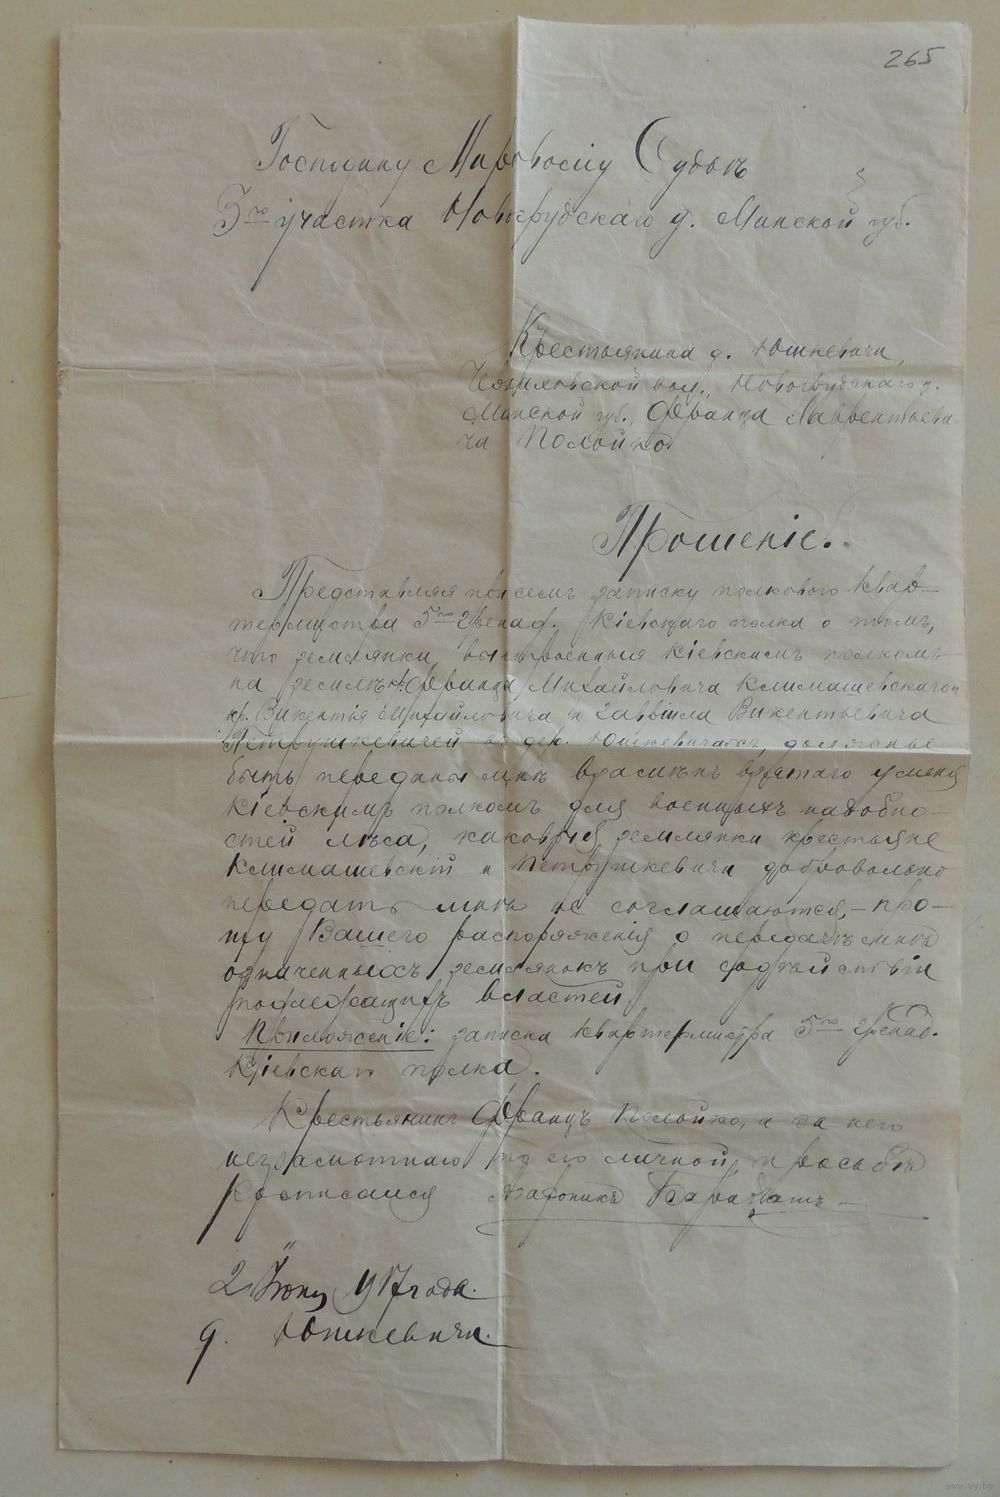 265
Господину Мировому Судьѣ
5го участка Новогрудскаго у. Минской губ.
Крестьянина д. Юшкевичи,
вол., Новогрудскаго у.
Минской губ., Франца Лаврентьеви-
ча Полойко
Прошеніе.
Представляя при семъ записку полкового Квар-
термистра 5го Гренад. Кіевскаго полка о томъ,
что землянки, выстроенныя Кіевскимъ полкомъ
на землѣ кр. Франца Михайловича Климашевскаго и
кр. Викентія Михайловича и Гавріила Викентьевича
Петрушкевичей въ дер. Юшкевичахъ, должны
быть переданы мнѣ взамѣнъ взятаго у меня
Кіевскимъ полкомъ для военныхъ надобно-
стей лѣса, каковыя землянки крестьяне
Климашевскій и Петрушкевичи добровольно
передать мнѣ не соглашаются, - про-
шу Вашего распоряженія о передачѣ мнѣ
означенныхъ землянокъ при содѣйствіи
подлежащихъ властей.
Приложеніе: записка Квартермистра 5го Гренад.
Кіевскаго полка.
Крестьянинъ Францъ Полойко, а за него
неграмотнаго по его личной просьбѣ
росписался
2 Іюня 1917 года.
д. Юшкевичи.
www.ay.by